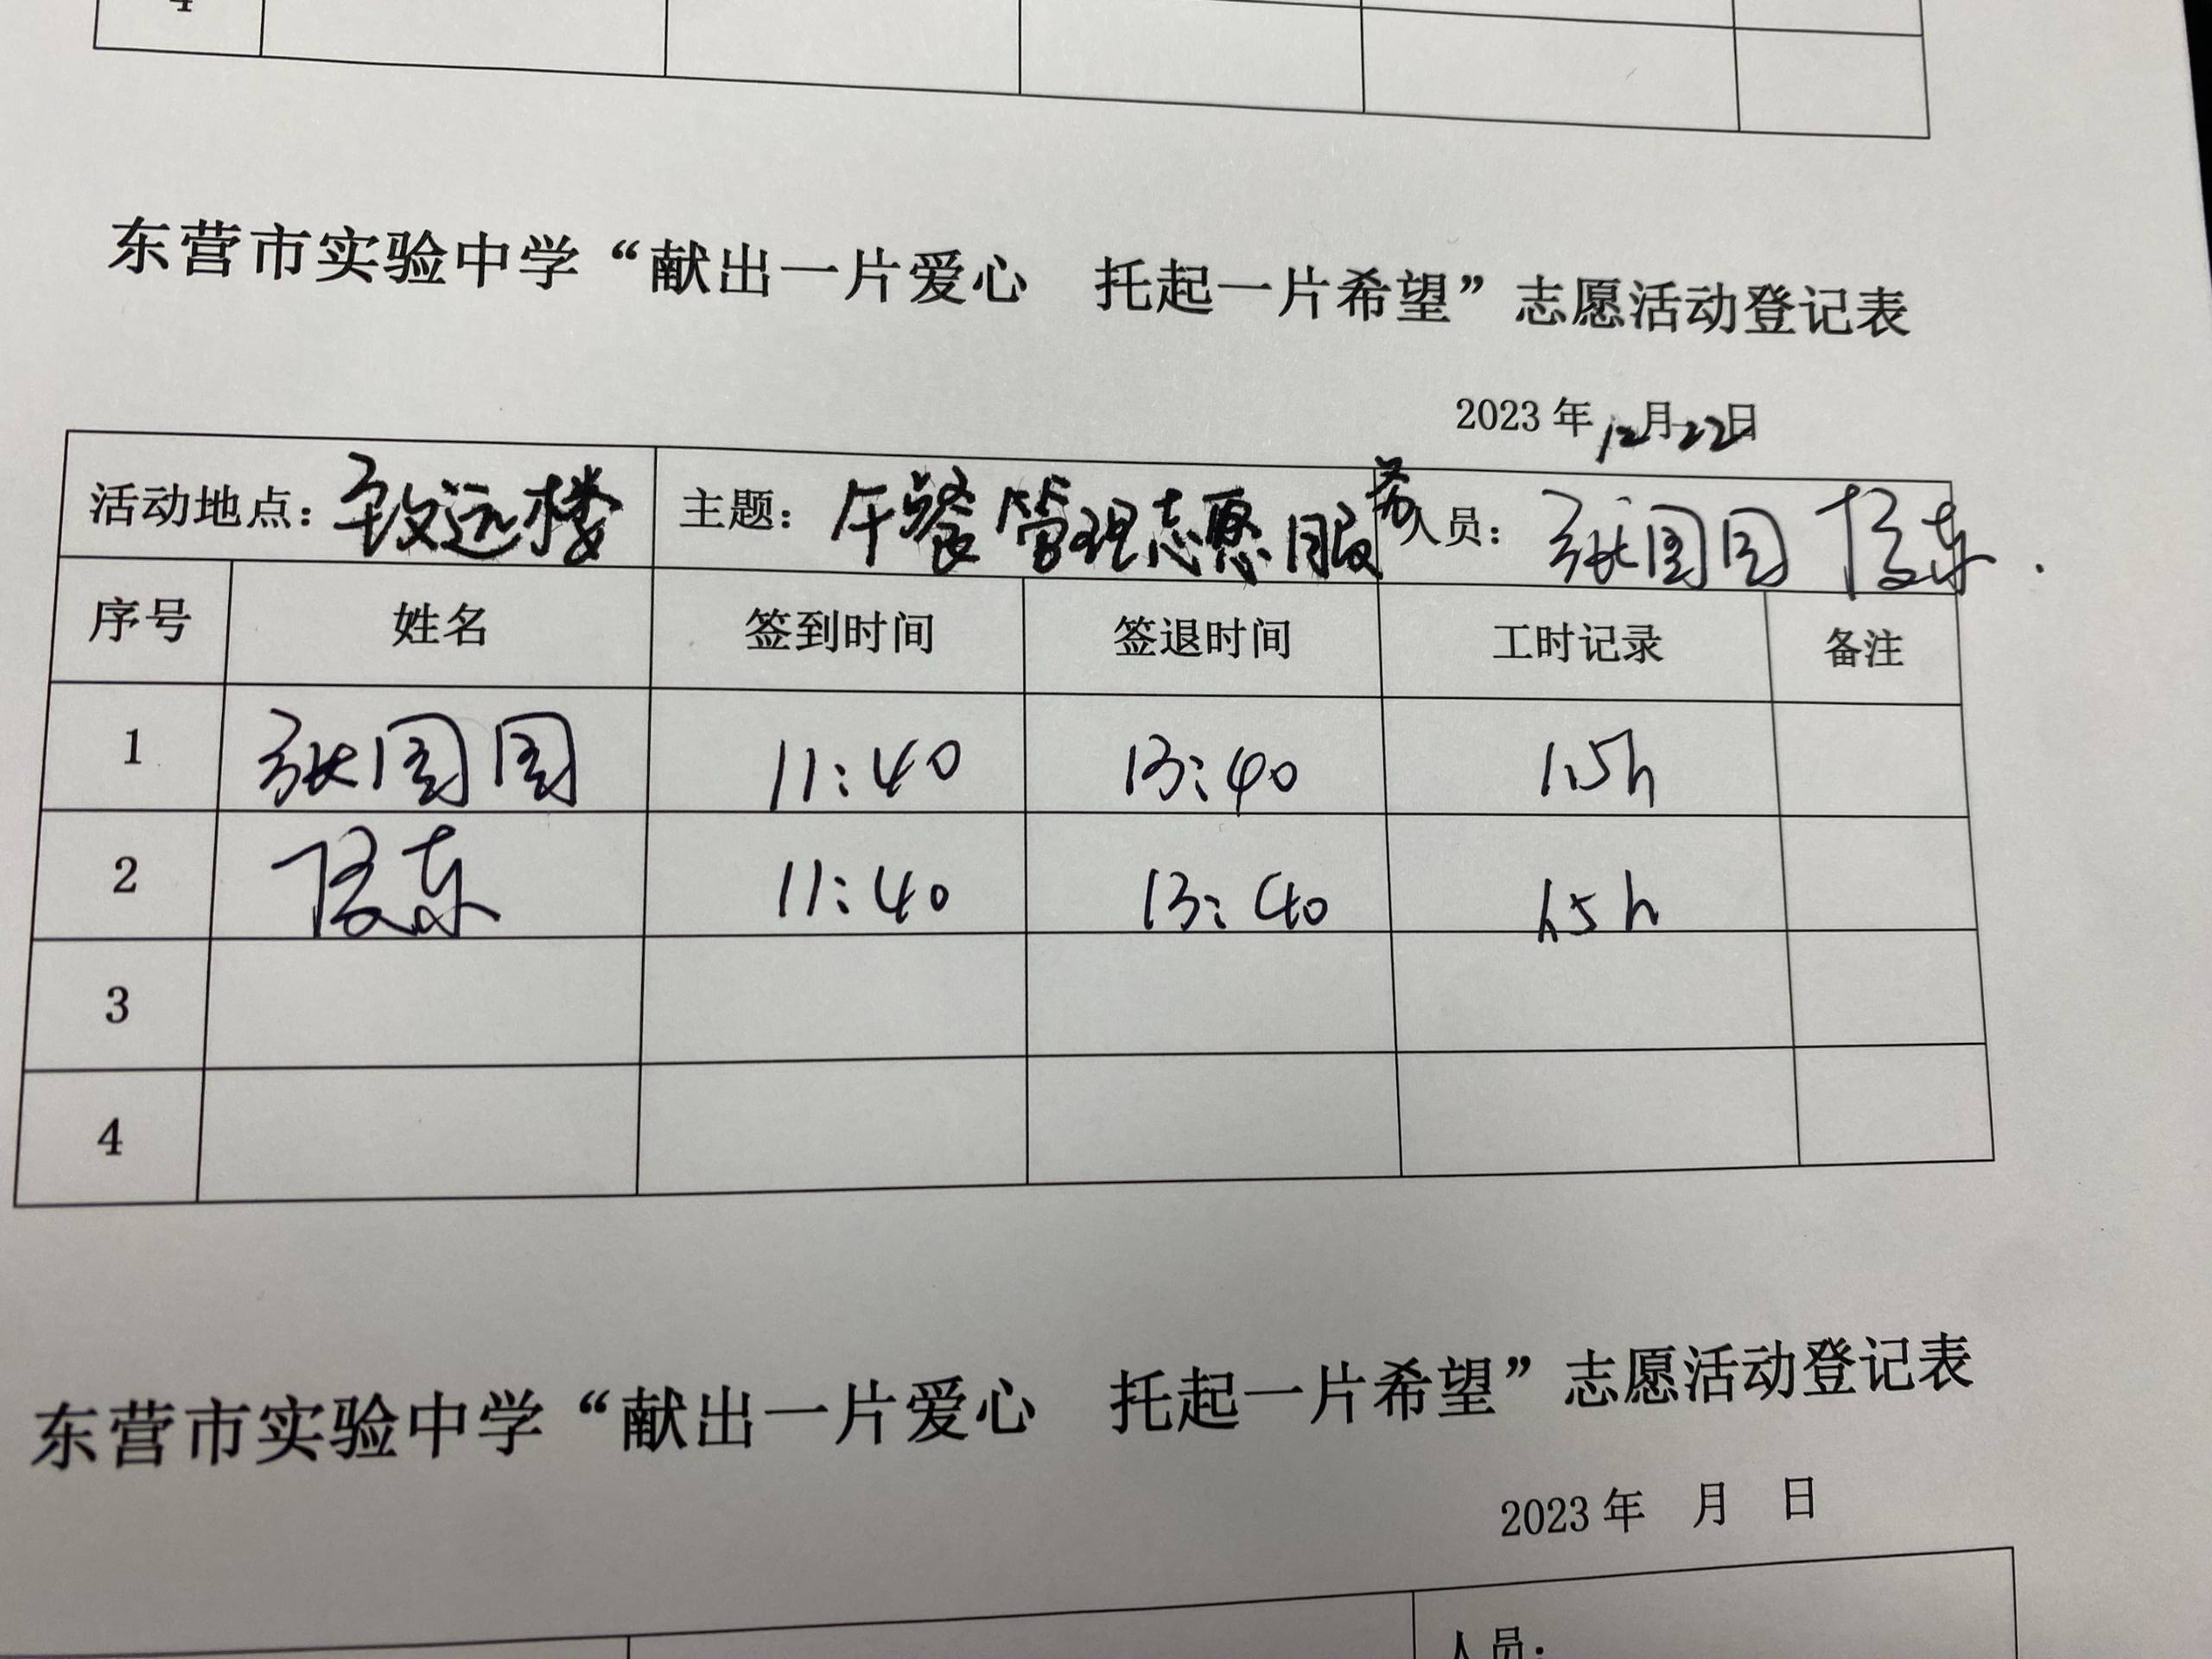 4
东营市实验中学“献出一片爱心 托起一片希望”志愿活动登记表
2023年12月22日
活动地点：致远楼 主题：午餐管理志愿服务 人员：张国国
序号 姓名 签到时间 签退时间 工时记录 备注
1 张国国 11:40 13:40 1.5h
2 11:40 13:40 1.5h
3
4
东营市实验中学“献出一片爱心 托起一片希望”志愿活动登记表
2023年 月 日
人员：